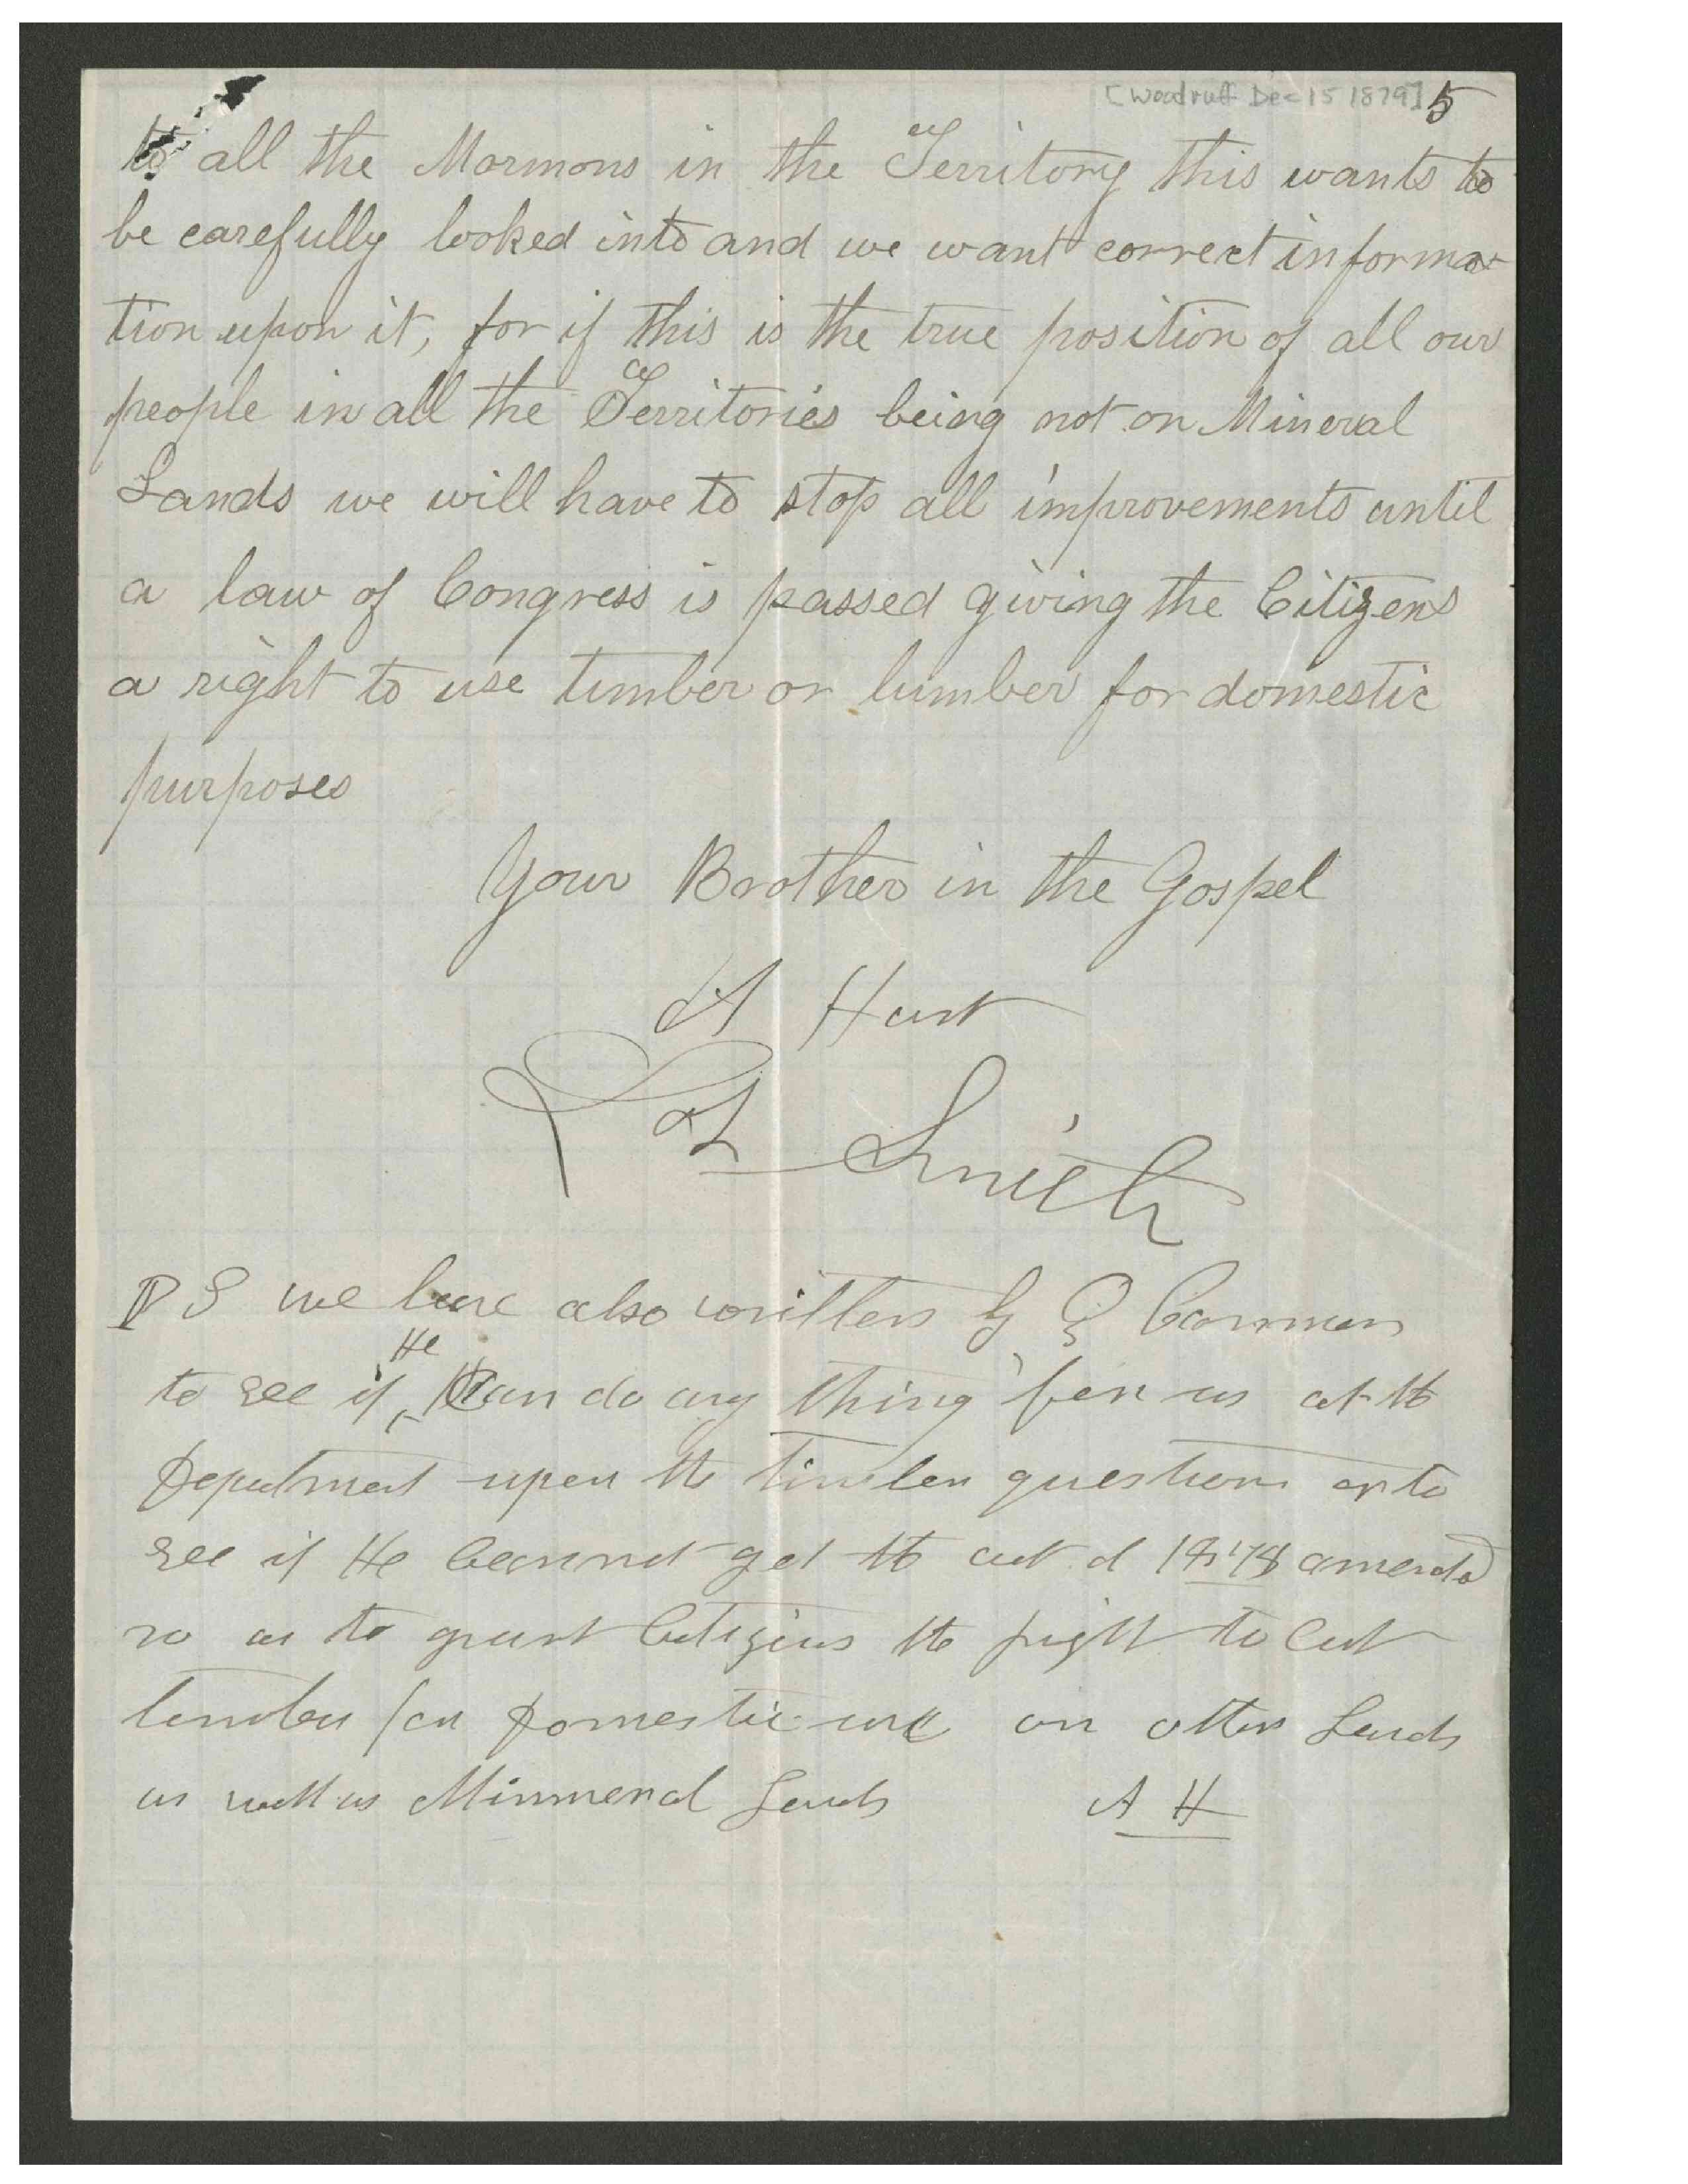 [Woodruff Dec 15 1879] 5
to all the Mormons in the Territory this wants to
be carefully looked into and we want correct informa-
tion upon it, for if this is the true position of all our
people in all the Territories being not on Mineral
Lands we will have to stop all improvements until
a law of Congress is passed giving the Citizens
a right to use timber or lumber for domestic
purposes
Your Brother in the Gospel
A Hart
Lot Smith
P S we have also written G Q Cannon
He
to see if can do any thing for us at the
Department upon the timber question or to
see if He cannot get the act of 1878 amended
so as to grant Citizens the right to cut
timber for domestic use on other Lands
as well as Minneral Lands A H